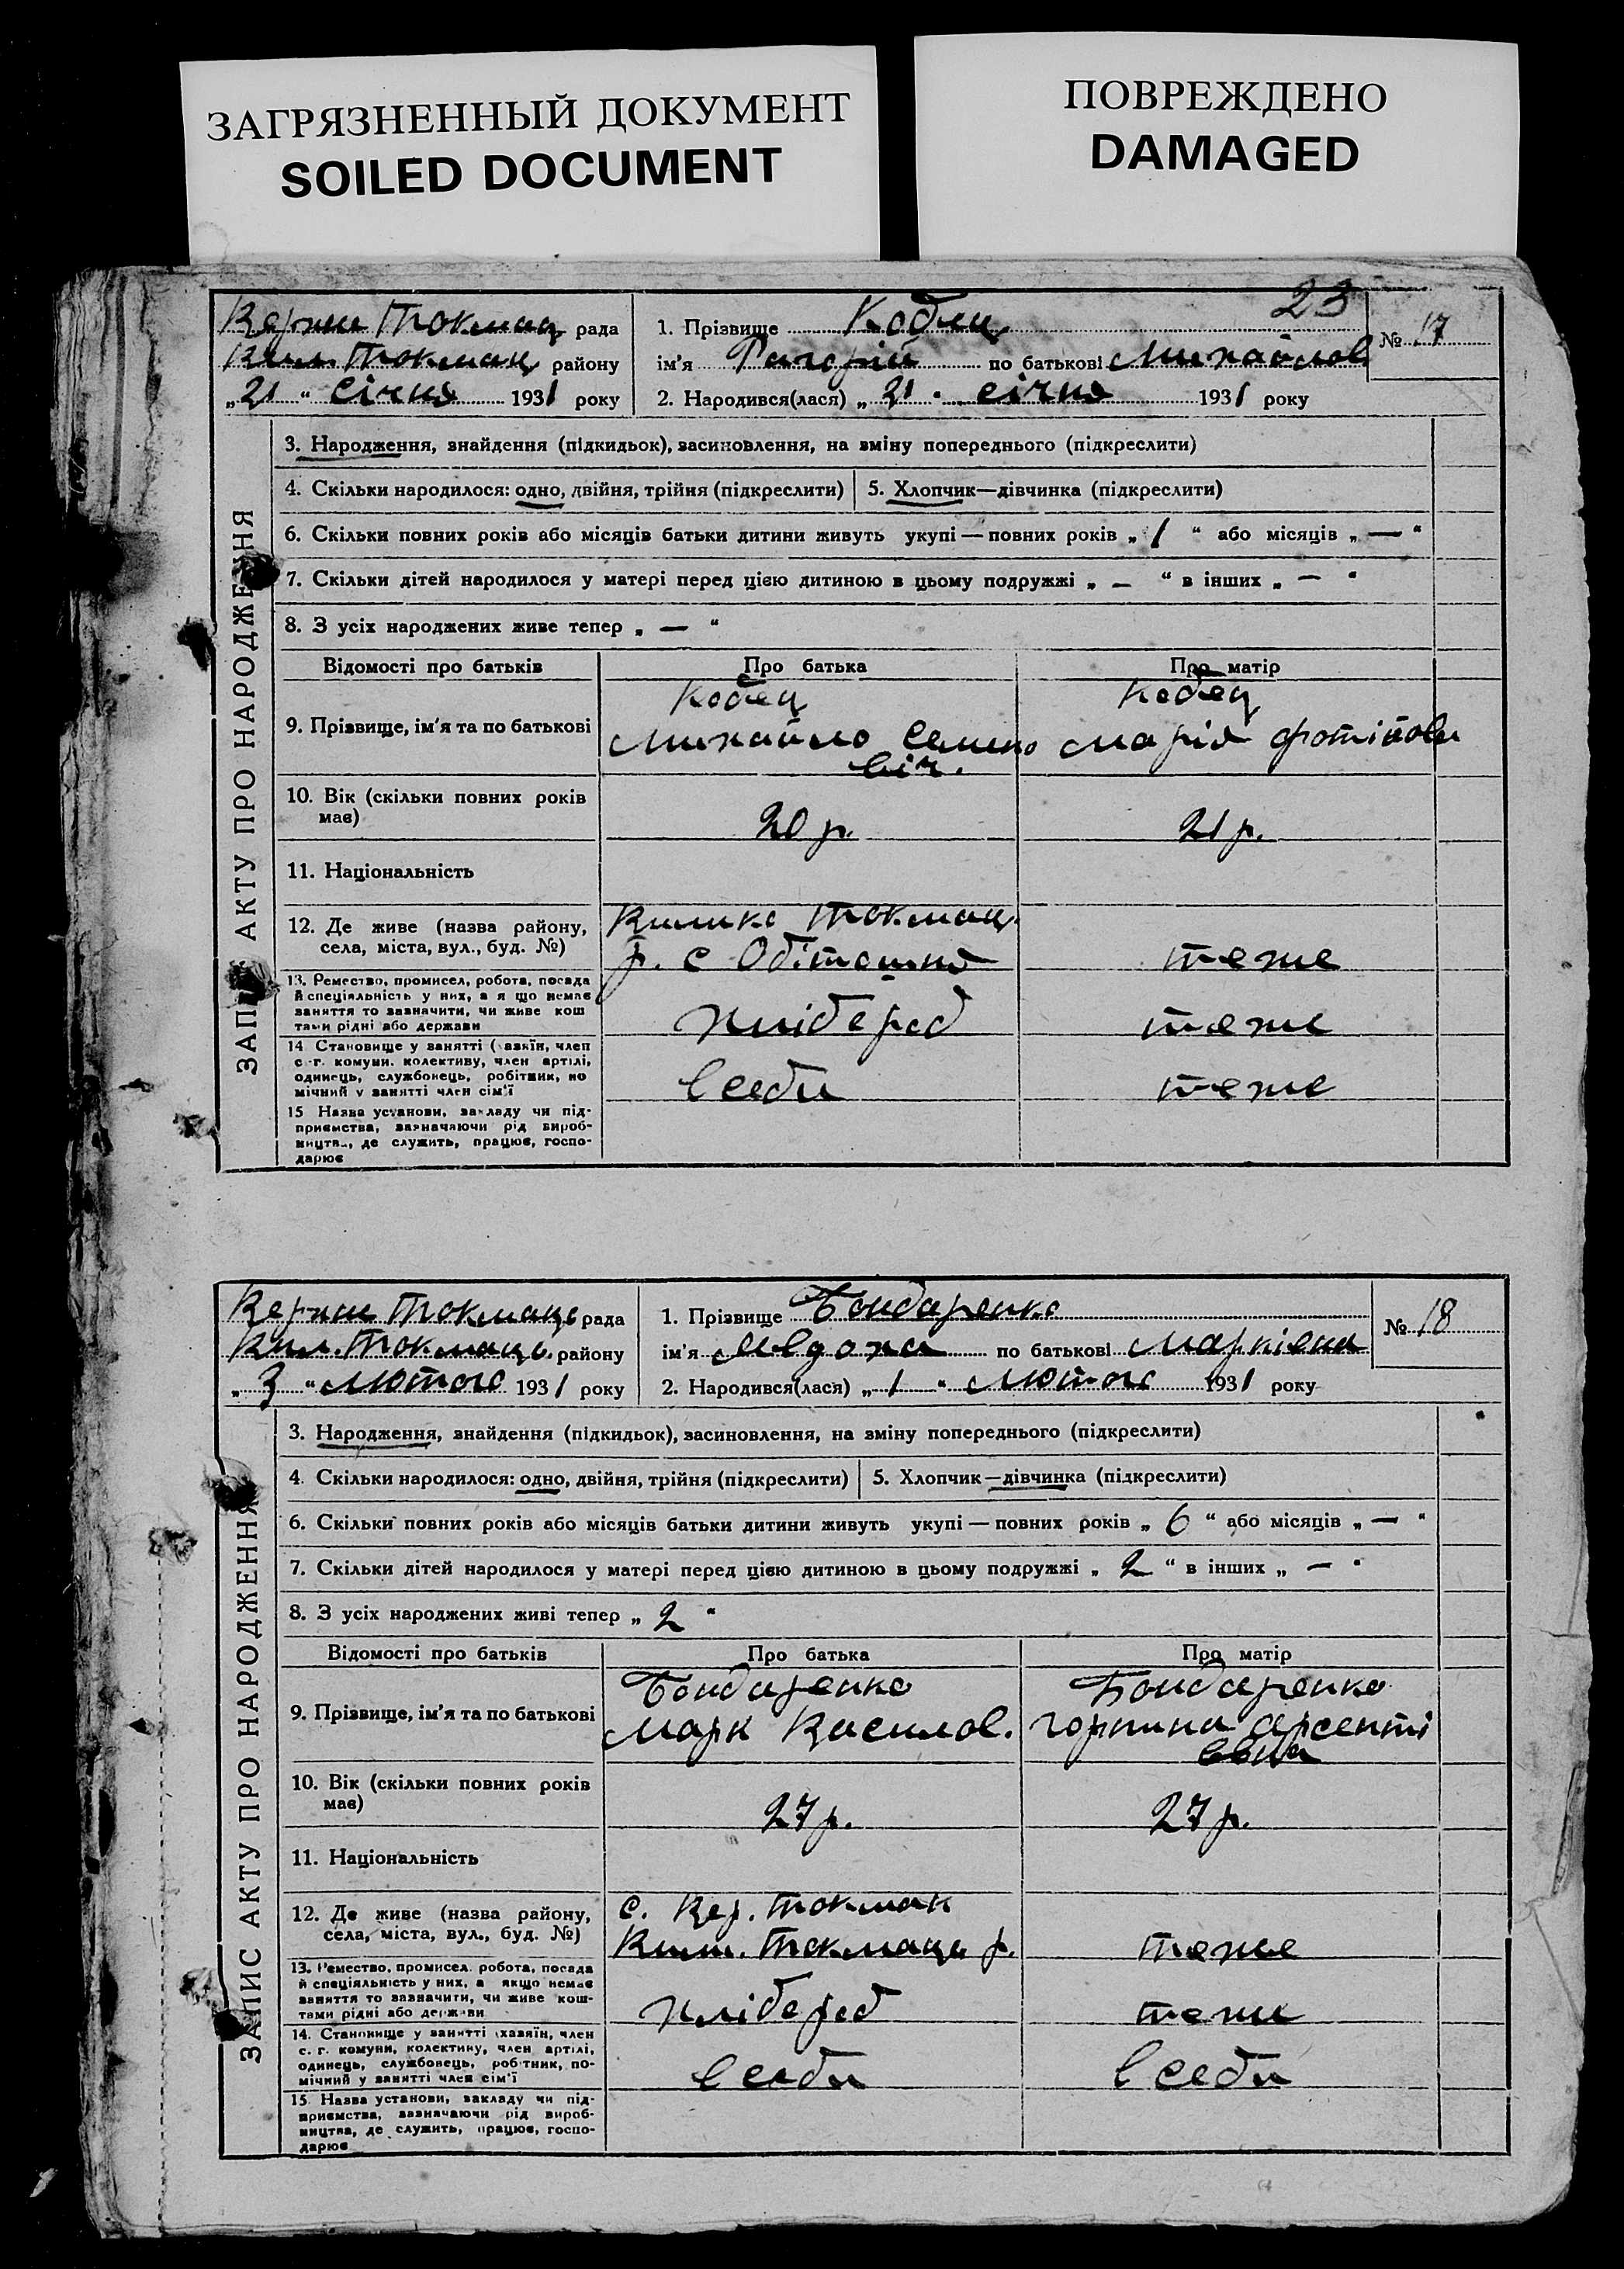 ЗАГРЯЗНЕННЫЙ ДОКУМЕНТ
SOILED DOCUMENT
ПОВРЕЖДЕНО
DAMAGED
23
Верхне Токмац рада
Вел. Токмац району
„21“ січня 1931 року
1. Прізвище Кобец
ім'я Григорій по батькові Михайлов
2. Народився(лася) „21“ січня 1931 року
№ 17
ЗАПИС АКТУ ПРО НАРОДЖЕННЯ
3. Народження, знайдення (підкидьок), засиновлення, на зміну попереднього (підкреслити)
4. Скільки народилося: одно, двійня, трійня (підкреслити)
5. Хлопчик—дівчинка (підкреслити)
6. Скільки повних років або місяців батьки дитини живуть укупі — повних років „1“ або місяців „—“
7. Скільки дітей народилося у матері перед цією дитиною в цьому подружжі „—“ в інших „—“
8. З усіх народжених живе тепер „—“
Відомості про батьків
Про батька
Про матір
9. Прізвище, ім'я та по батькові
Кобец
Михайло Семено
віч.
Кобец
Марія Фотіівна
10. Вік (скільки повних років
має)
20 р.
21 р.
11. Національність
12. Де живе (назва району,
села, міста, вул., буд. №)
Токмац.
р. с
теже
13. Ремество, промисел, робота, посада
й спеціяльність у них, а я що немає
заняття то зазначити, чи живе кош
тами рідні або держави
хлібороб
теже
14 Становище у занятті (хазяїн, член
с.-г. комуни, колективу, член артілі,
одинець, службовець, робітник, по
мічний у занятті член сім'ї
в себе
теже
15 Назва установи, закладу чи під-
приємства, зазначаючи рід вироб-
ництва, де служить, працює, госпо-
дарює
Верхне Токмаць рада
Вел. Токмаць. району
„3“ Лютого 1931 року
1. Прізвище Бондаренко
ім'я Явдоха по батькові Марківна
2. Народився(лася) „1“ Лютого 1931 року
№ 18
ЗАПИС АКТУ ПРО НАРОДЖЕННЯ
3. Народження, знайдення (підкидьок), засиновлення, на зміну попереднього (підкреслити)
4. Скільки народилося: одно, двійня, трійня (підкреслити)
5. Хлопчик—дівчинка (підкреслити)
6. Скільки повних років або місяців батьки дитини живуть укупі — повних років „6“ або місяців „—“
7. Скільки дітей народилося у матері перед цією дитиною в цьому подружжі „2“ в інших „—“
8. З усіх народжених живі тепер „2“
Відомості про батьків
Про батька
Про матір
9. Прізвище, ім'я та по батькові
Бондаренко
Марк Василов.
Бондаренко
Горпина Арсенті
ївна
10. Вік (скільки повних років
має)
27 р.
27 р.
11. Національність
12. Де живе (назва району,
села, міста, вул., буд. №)
с. Вер. Токмак
Вел. Токмаць р.
теже
13. Ремество, промисел. робота, посада
й спеціяльність у них, а якщо немає
заняття то зазначити, чи живе кош-
тами рідні або держави
хлібороб
теже
14. Становище у занятті (хазяїн, член
с. г. комуни, колективу, член артілі,
одинець, службовець, робітник, по-
мічний у занятті член сім'ї
в себе
в себе
15. Назва установи, закладу чи під-
приємства, зазначаючи рід вироб-
ництва, де служить, працює, госпо-
дарює